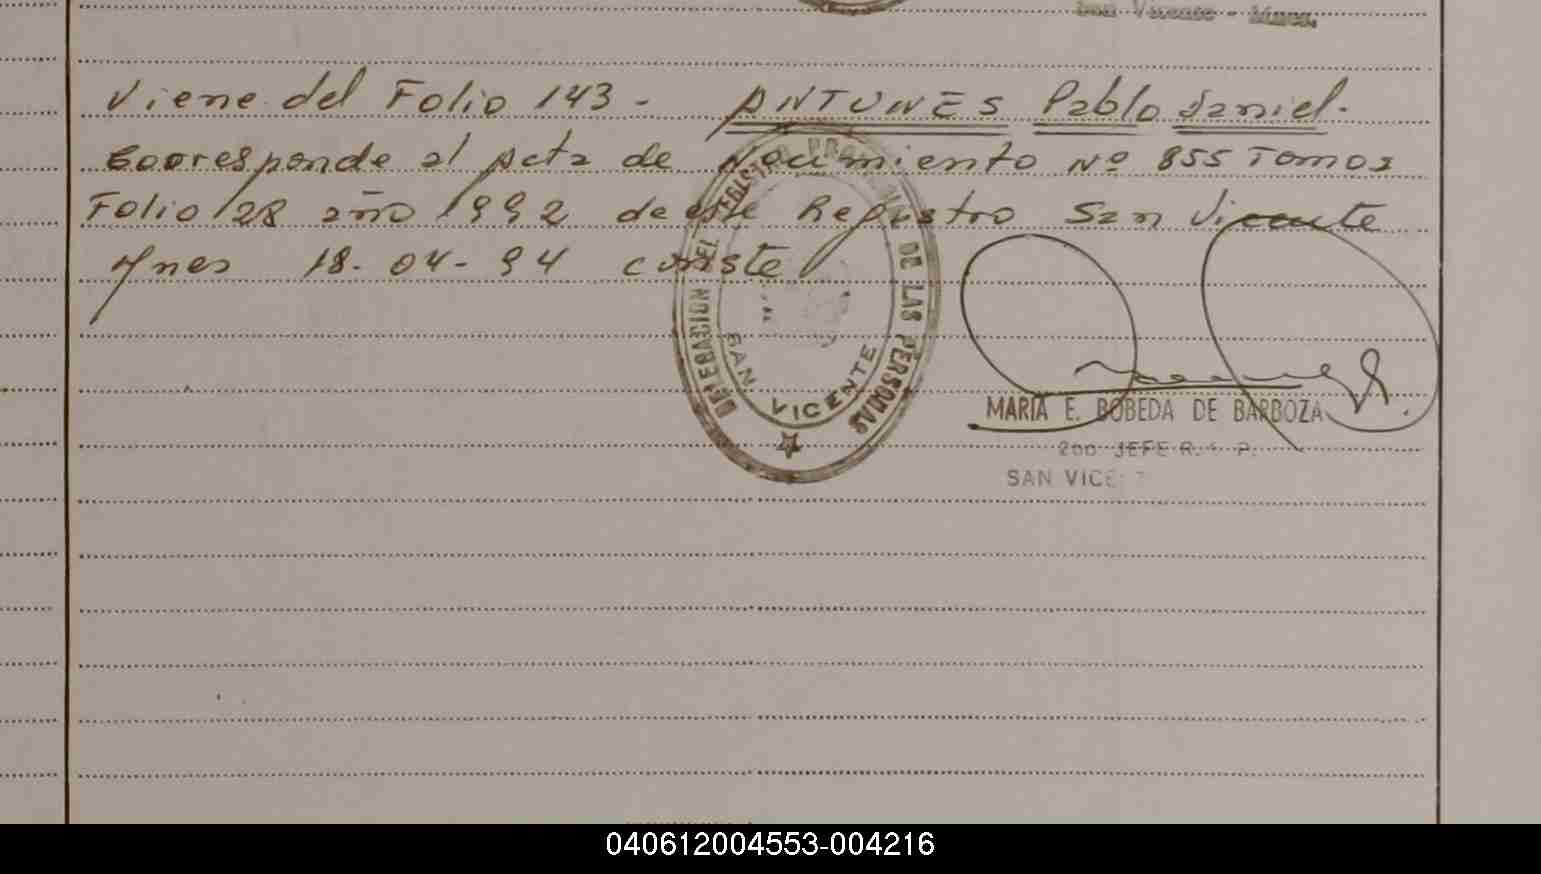 San Vicente - Mnes.
Viene del Folio 143 - ANTUNES Pablo Daniel.
Corresponde al Acta de Nacimiento Nº 855 Tomo 3
Folio 128 año 1992 de este Registro San Vicente
Mnes 18-04-94 conste
DELEGACION DEL REGISTRO PROVINCIAL DE LAS PERSONAS
SAN VICENTE
MARIA E. BOBEDA DE BARBOZA
2do JEFE R. P.
SAN VICE
040612004553-004216